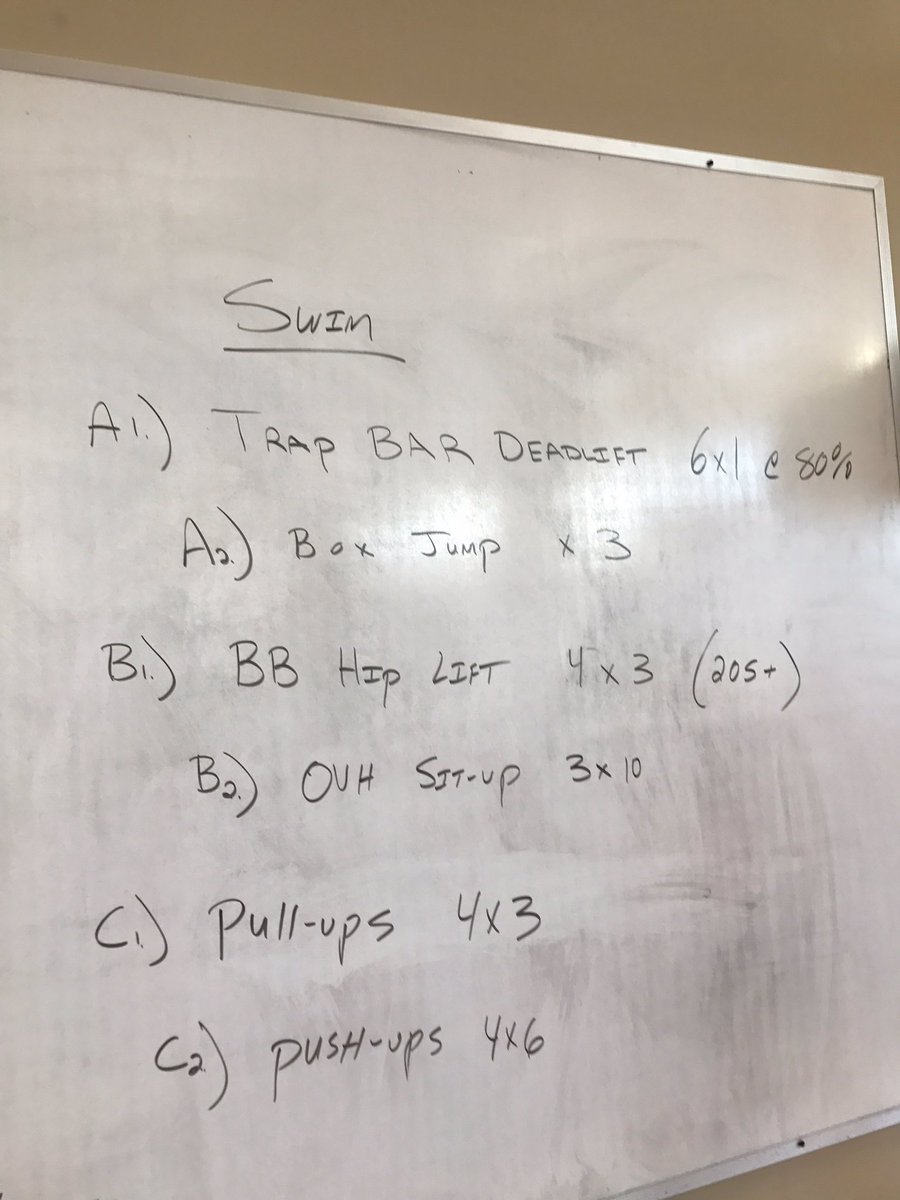 Swim
A1.) TRAP BAR DEADLIFT 6x1 @ 80%
A2.) Box Jump x 3
B1.) BB HIP LIFT 4x3 (205+)
B2.) OVH SIT-UP 3x10
C1.) Pull-ups 4x3
C2.) PUSH-ups 4x6